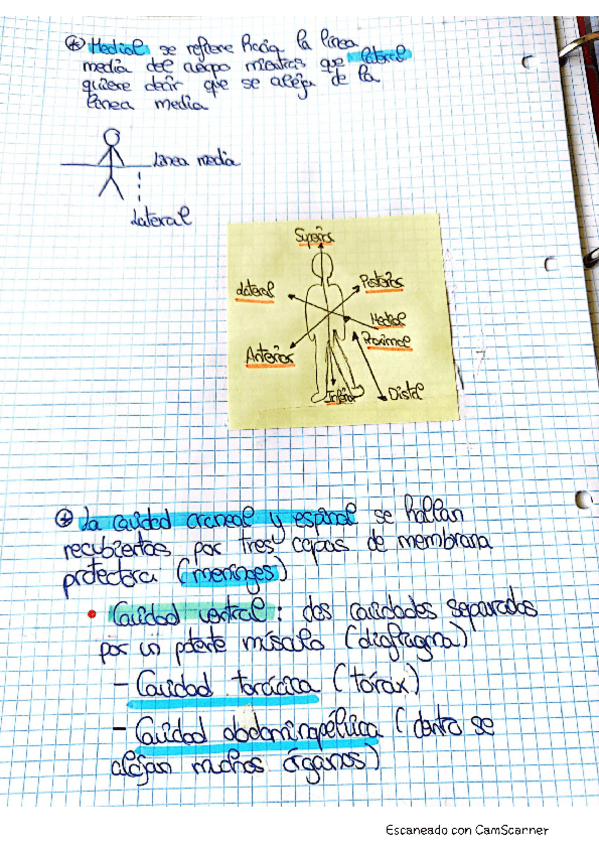 Medial se refiere hacia la línea
media del cuerpo mientras que lateral
quiere decir que se aleja de la
línea media
Línea media
Lateral
Superior
Lateral
Posterior
Medial
Proximal
Anterior
Inferior
Distal
La cavidad craneal y espinal se hallan
recubiertas por tres capas de membrana
protectora (meninges)
• Cavidad ventral: dos cavidades separadas
por un potente músculo (diafragma)
- Cavidad torácica (tórax)
- Cavidad abdominopélvica (dentro se
alojan muchos órganos)
Escaneado con CamScanner